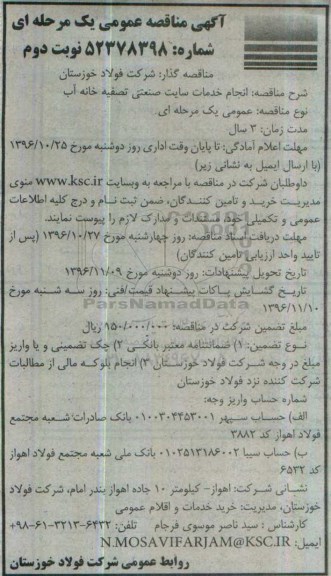 آگهی مناقصه عمومی یک مرحله ای
شماره: ۵۲۳۷۸۳۹۸ نوبت دوم
مناقصه گذار: شرکت فولاد خوزستان
شرح مناقصه: انجام خدمات سایت صنعتی تصفیه خانه آب
نوع مناقصه: عمومی یک مرحله ای
مدت زمان: ۳ سال
مهلت اعلام آمادگی: تا پایان وقت اداری روز دوشنبه مورخ ۱۳۹۶/۱۰/۲۵
(با ارسال ایمیل به نشانی زیر)
داوطلبان شرکت در مناقصه با مراجعه به وبسایت www.ksc.ir منوی
مدیریت خرید و تامین کنندگان، ضمن ثبت نام و درج کلیه اطلاعات
عمومی و تکمیلی خود، مستندات و مدارک لازم را پیوست نمایند.
مهلت دریافت اسناد مناقصه: روز چهارشنبه مورخ ۱۳۹۶/۱۰/۲۷ (پس از
تایید واحد ارزیابی تامین کنندگان)
تاریخ تحویل پیشنهادات: روز دوشنبه مورخ ۱۳۹۶/۱۱/۰۹
تاریخ گشایش پاکات پیشنهاد قیمت/فنی: روز سه شنبه مورخ
۱۳۹۶/۱۱/۱۰
ParsNamadData
مبلغ تضمین شرکت در مناقصه: ۱۵۰/۰۰۰/۰۰۰ ریال
نوع تضمین: ۱) ضمانتنامه معتبر بانکی ۲) چک تضمینی و یا واریز
مبلغ در وجه شرکت فولاد خوزستان ۳) انجام بلوکه مالی از مطالبات
شرکت کننده نزد فولاد خوزستان
شماره حساب واریز وجه:
الف) حساب سپهر ۰۱۰۰۳۰۴۴۵۳۰۰۱ بانک صادرات شعبه مجتمع
فولاد اهواز کد ۳۸۸۲
ب) حساب سیبا ۰۱۰۲۵۱۳۱۸۶۰۰۲ بانک ملی شعبه مجتمع فولاد اهواز
کد ۶۵۳۲
نشانی شرکت: اهواز- کیلومتر ۱۰ جاده اهواز بندر امام، شرکت فولاد
خوزستان، مدیریت: خرید خدمات و اقلام عمومی
کارشناس : سید ناصر موسوی فرجام تلفن: ۶۴۳۲-۳۲۱۳-۶۱-۹۸+
ایمیل: N.MOSAVIFARJAM@KSC.IR
روابط عمومی شرکت فولاد خوزستان